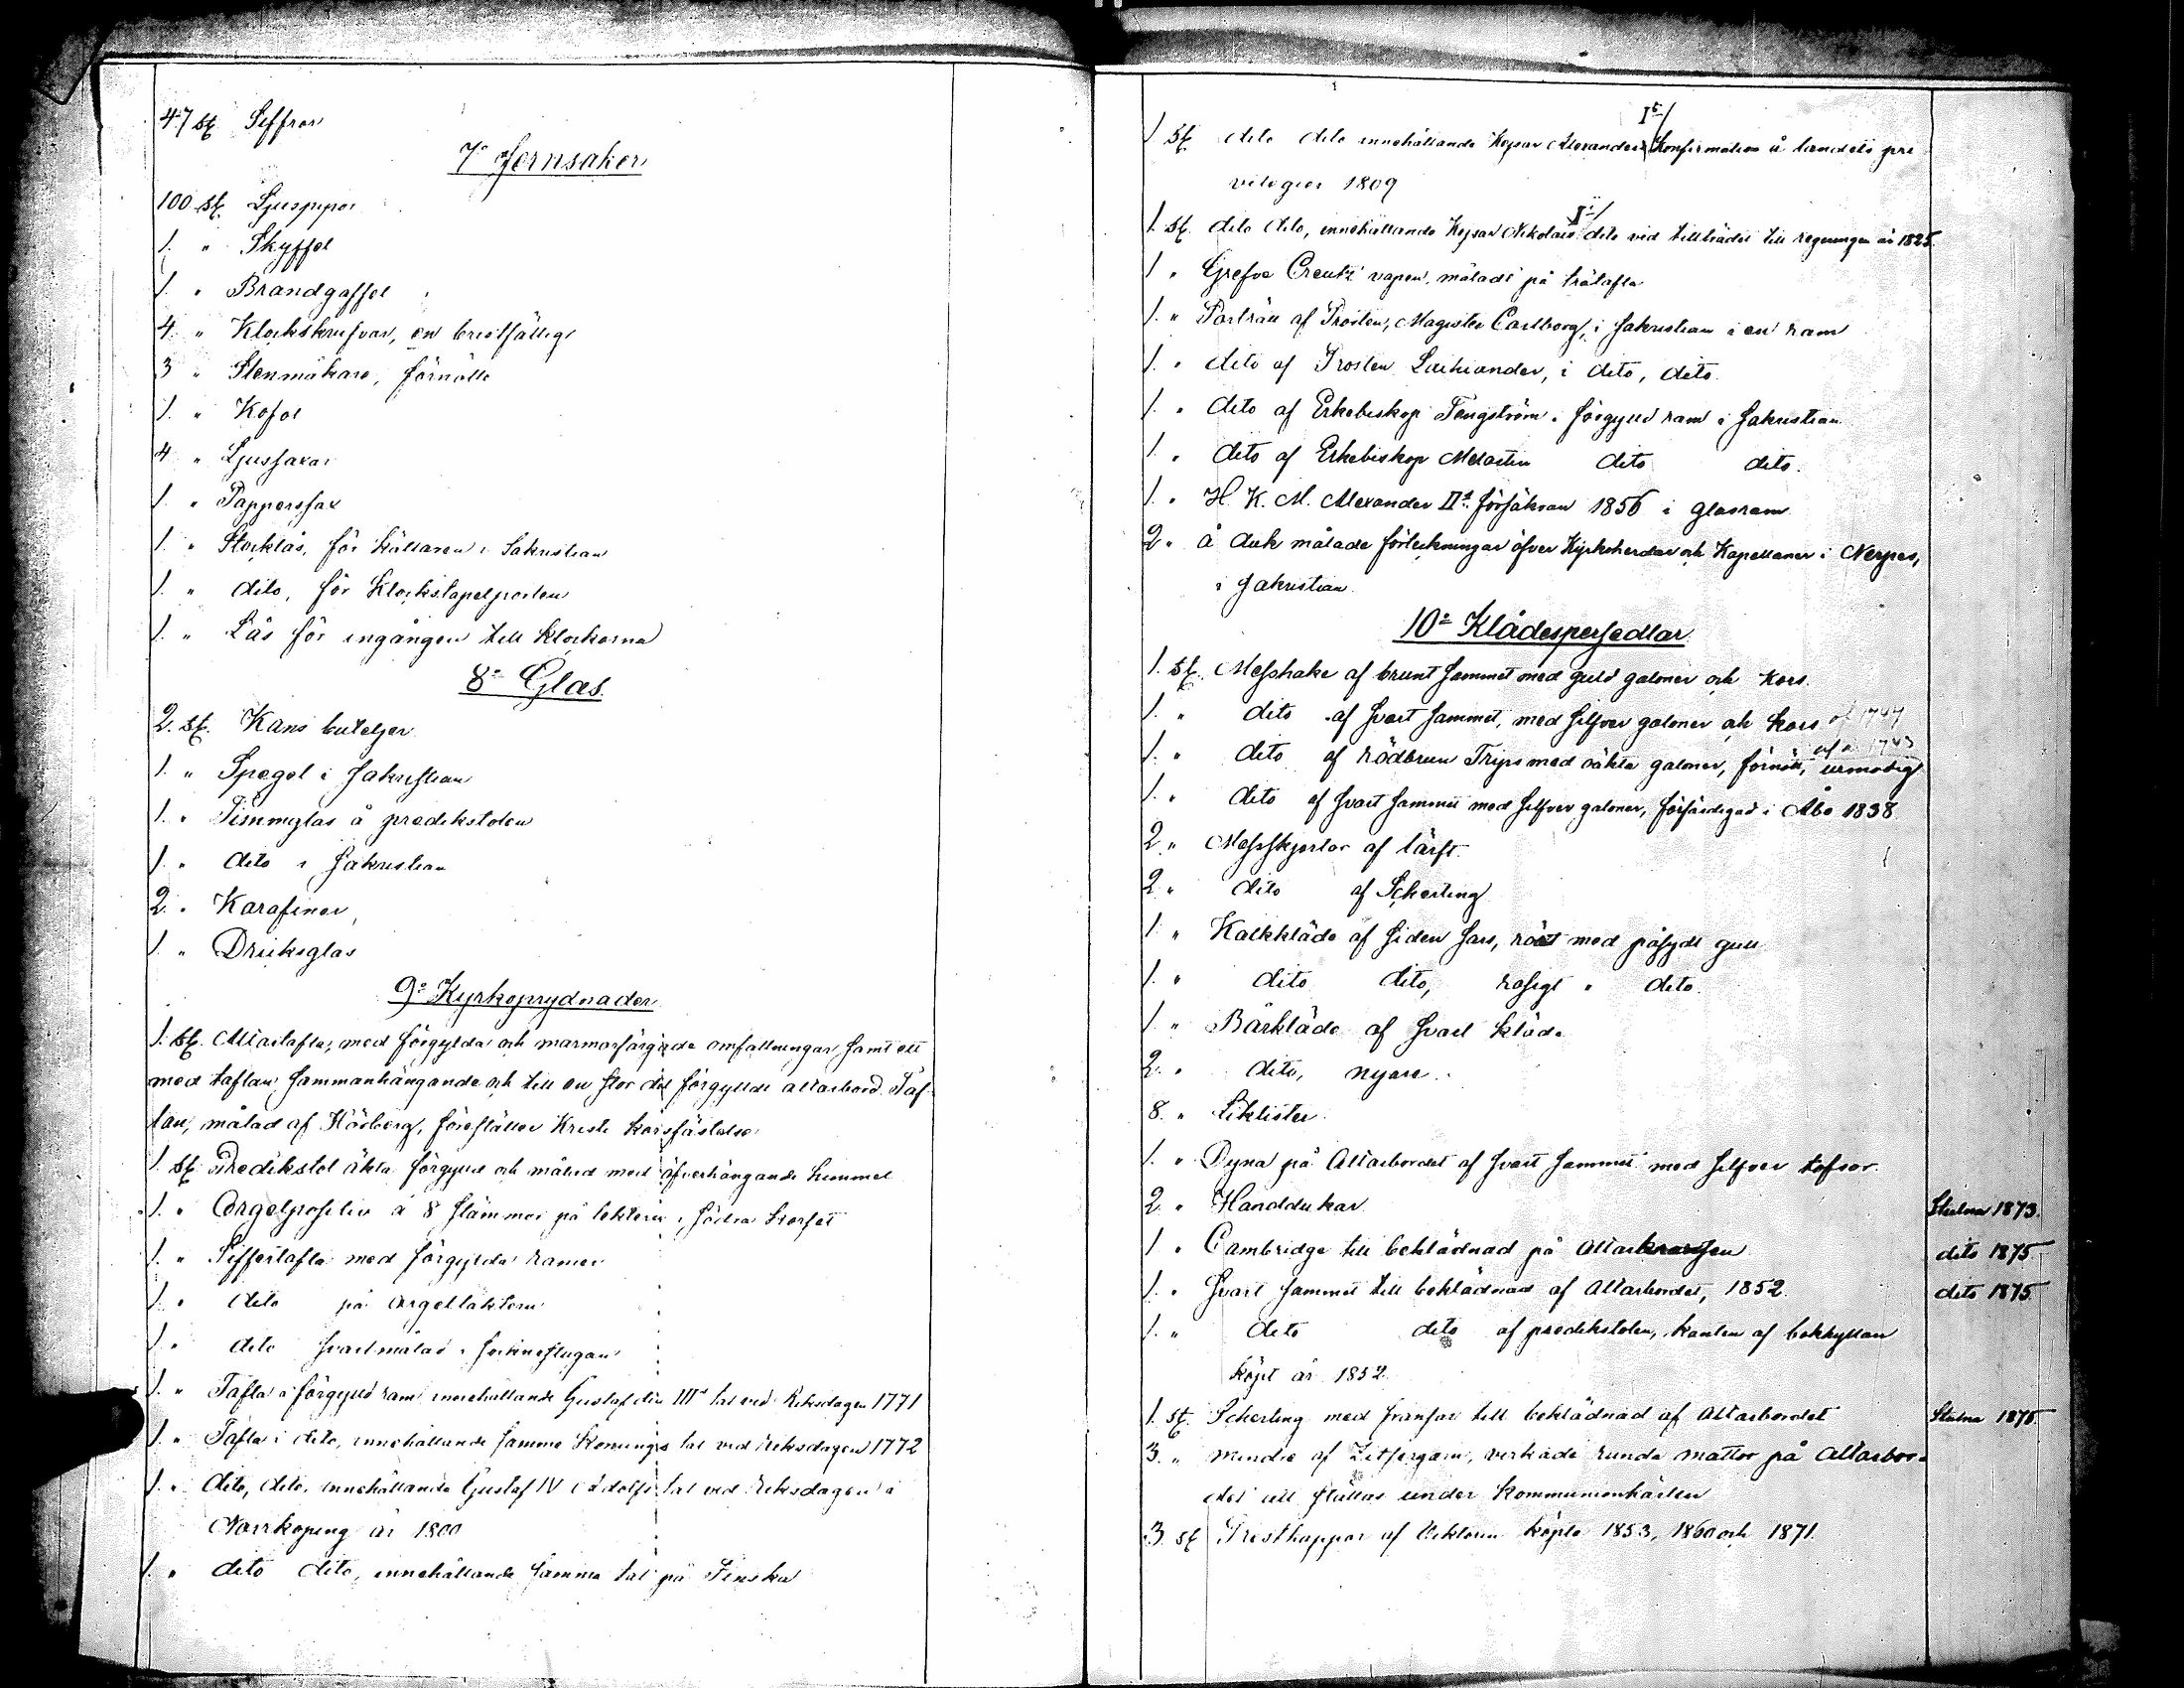 47 st Siffror
7o Jernsaker
100 st. Ljuspipor
1. " Skyffel
1. " Brandgaffel
4. " Klockskrufvar, en bristfällig
3 " Stenmäkare, förnötte
1. " Kofot
4 " Ljussaxar
1. " Papperssax
1. " Stocklås, för källaren i Sakristian
1. " dito, för Klockstapelporten
1. " Lås för ingången till klockorna
8o Glas.
2. st. Kans buteljer
1. " Spegel i Sakristian
1. " Timmglas å predikstolen
1. " dito i Sakristian
2. " Karafiner
1. " Dricksglas
9o Kyrkoprydnader
1. st. Altartafla, med förgylda och marmorfärgade omfattningar, samt ett
med taflan sammanhängande och till en stor del förgylldt altarbord. Taf-
lan, målad af Hörberg, föreställer Kristi korsfästelse
1. st. Predikstol äkta förgylld och målad med öfverhängande himmel
1. " Orgelpositiv à 8 stämmor på lektern i södra korset
1. " Siffertafla med förgylda ramer
1. " dito på orgelläktern
1. " dito svartmålad i sockenstugan
1. " Tafla i förgylld ram innehållande Gustaf den IIIs tal vid Riksdagen 1771
1. " Tafla i dito, innehållande samma Konungs tal vid Riksdagen 1772
1. " dito, dito, innehållande Gustaf IV Adolfs tal vid Riksdagen i
Norrköping år 1800
1. " dito dito, innehållande samma tal på Finska
Is/
1 st dito dito innehållande Kejsar Alexanders Konfirmation å landets pri
vilegier 1809
Is/
1. st. dito dito, innehållande Kejsar Nikolais dito vid tillträdet till regeringen år 1825.
1 " Grefve Creutz' vapen, måladt på trätafla
1. " Porträtt af Prosten, Magister Carlborg, i Sakristian i en ram
1. " dito af Prosten , i dito, dito.
1. " dito af Erkebiskop Tengström i förgylld ram i Sakristian
1. " dito af Erkebiskop Melartin dito dito.
1. " H. K. M. Alexander IIs försäkran 1856 i glasram
2. " å duk målade förteckningar öfver Kyrkoherdar och Kapellaner i Nerpes,
i Sakristian.
10o Klädespersedlar
1. st. Messhake af brunt sammet med guld galoner och Kors.
1. " dito af svart sammet, med silfver galoner och kors af 1747
af år 1743
1. " dito af rödbrun Trips med oäkta galoner, förnött, urmodig
1. " dito af svart sammet med silfver galoner, förfärdigad i Åbo 1838
2. " Messskjortor af lärft.
2. " dito af Scherting
1. " Kalkkläde af siden sars, rödt med påsydt gull
1. " dito dito, rosigt " dito.
1. " Bårkläde af svart kläde
2. " dito, nyare.
8. " Liklister
1. " Dyna på Altarbordet af svart sammet med silfver tofsor.
2. " Handdukar Stulna 1873.
1. " Cambridge till beklädnad på Altarkransen dito 1875.
1. " Svart sammet till beklädnad af Altarbordet, 1852. dito 1875.
1. " dito dito af predikstolen, kanten af bokhyllan
köpt år 1852.
1. st. Scherting med fransar till beklädnad af Altarbordet Stulna 1875.
3. " mindre af Zefirgarn, verkade runda mattor på Altarbor-
det att ställas under Kommunionkärlen
3. st Prestkappor af köpte 1853, 1860 och 1871.